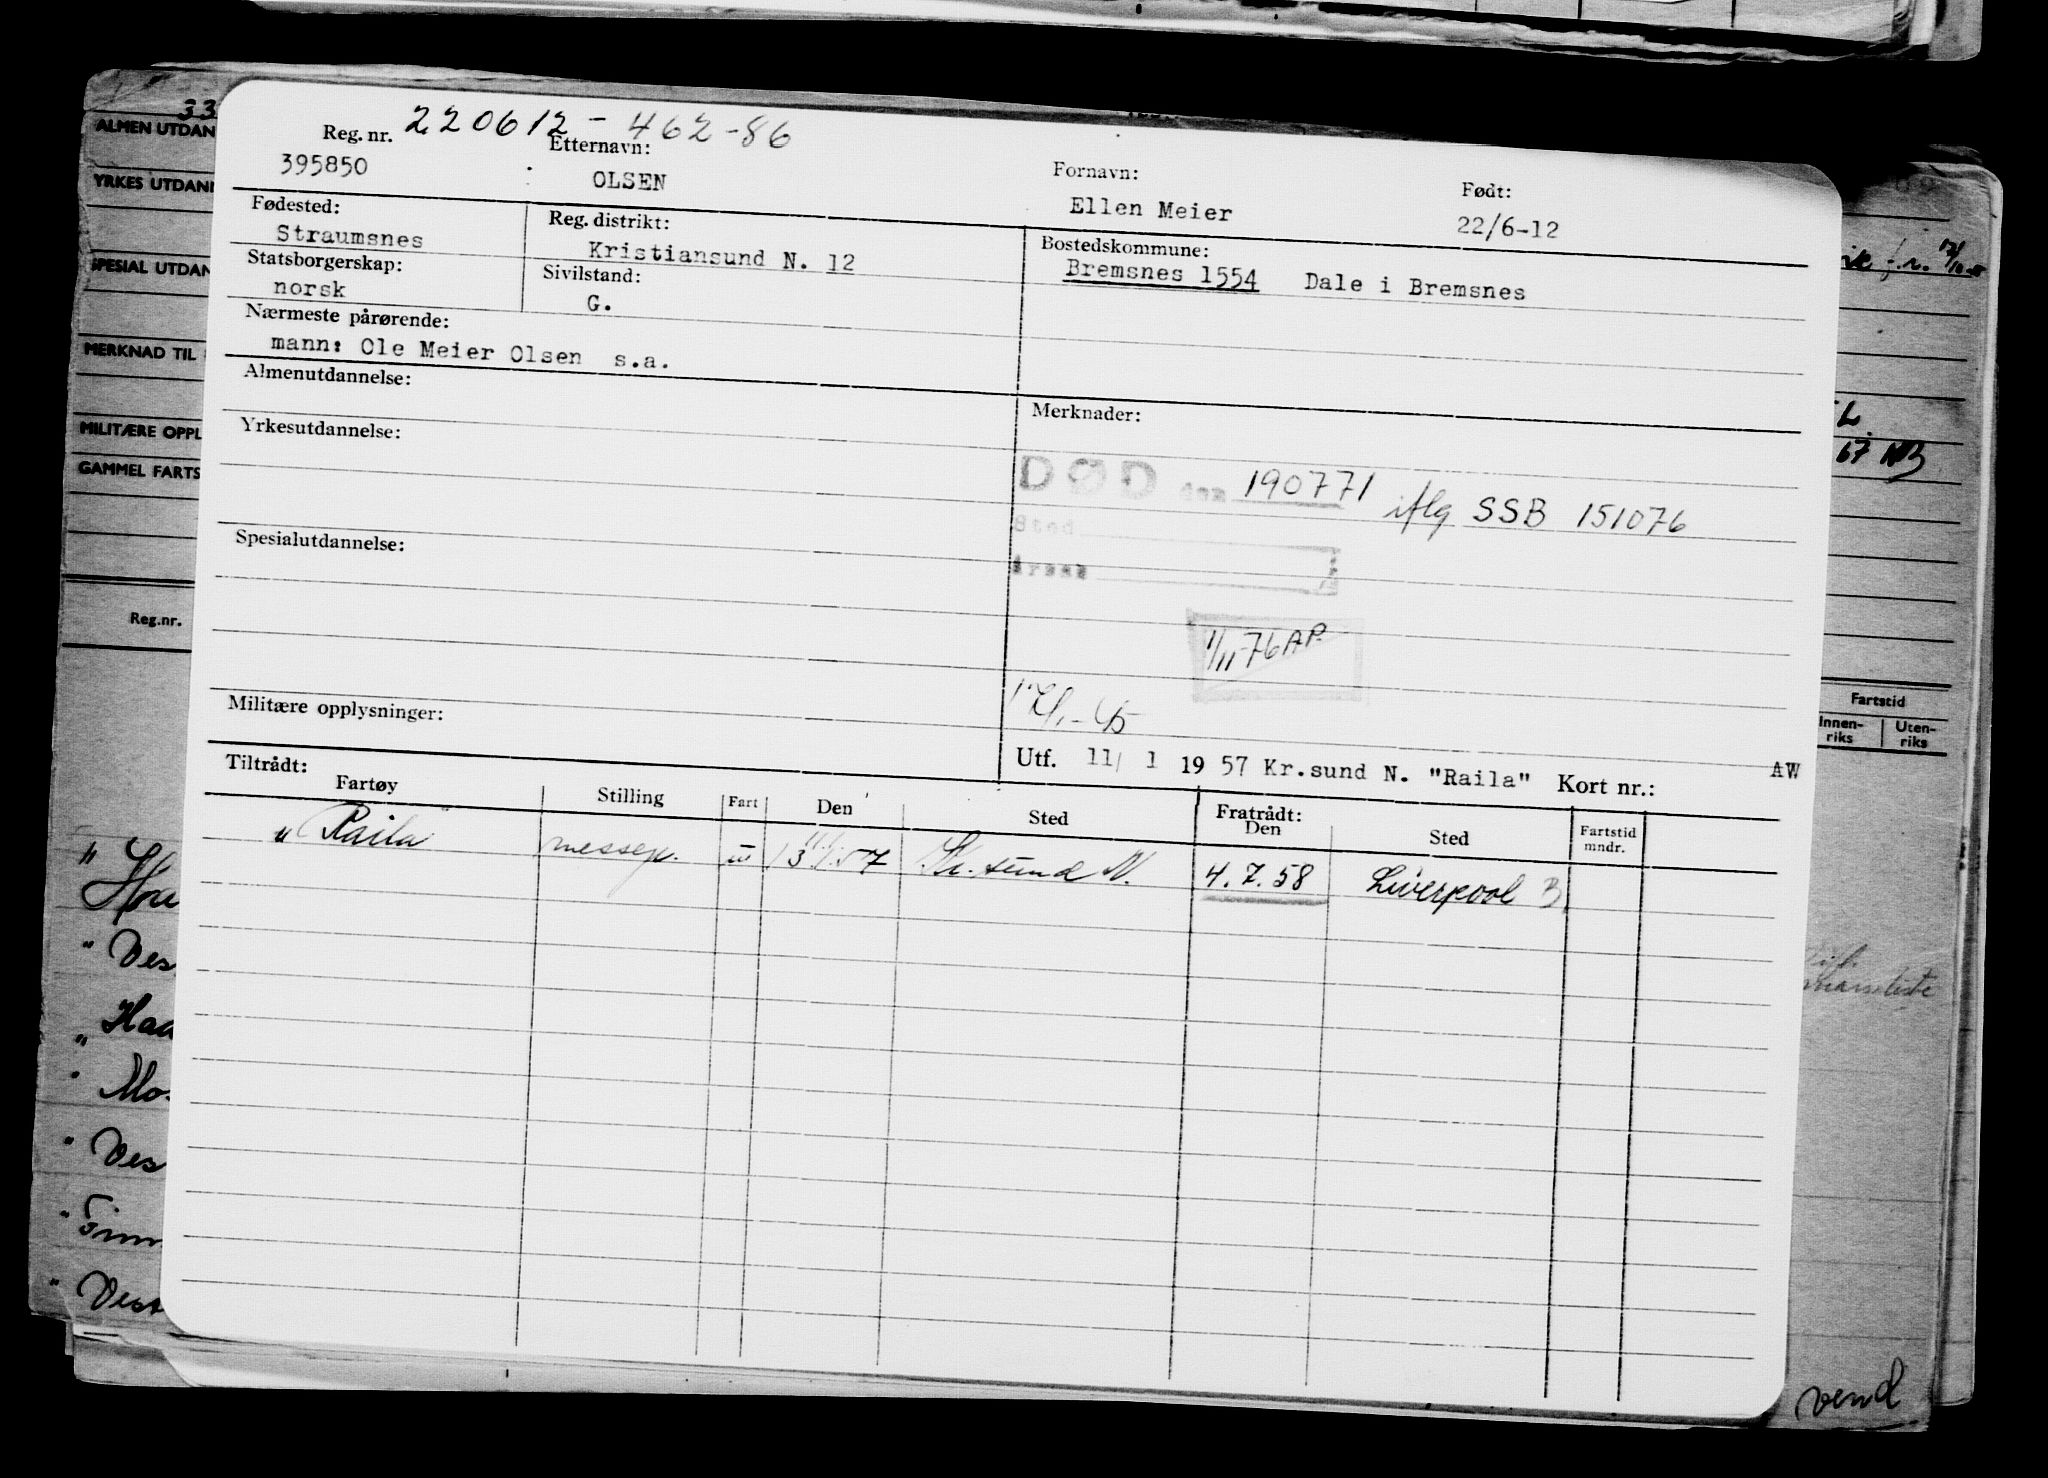 220612-462-86
Reg. nr. Etternavn: Fornavn: Født:
395850 OLSEN Ellen Meier 22/6-12
Fødested: Reg. distrikt: Bostedskommune:
Straumsnes Kristiansund N. 12 Bremsnes 1554 Dale i Bremsnes
Statsborgerskap: Sivilstand:
norsk G.
Nærmeste pårørende:
mann: Ole Meier Olsen s.a.
Almenutdannelse: Merknader:
Yrkesutdannelse:
DØD den 190771 iflg SSB 151076
Sted
Spesialutdannelse:
Årsak
1/11-76 AP.
Militære opplysninger:
Utf. 11/ 1 19 57 Kr.sund N. "Raila" Kort nr.: AW
Tiltrådt: Fratrådt:
Fartøy Stilling Fart Den Sted Den Sted Fartstid mndr.
" Raila" messep. Kr. sund N. 4.7.58 Liverpool B
33
ALMEN UTDAN
YRKES UTDAN
SPESIAL UTDAN
MERKNAD TIL
MILITÆRE OPPL
GAMMEL FARTS
Reg.nr.
" Ves
" Haa
" Mo
" Ves
" Vest
67 NB
Fartstid
Innen-riks Uten-riks
vend